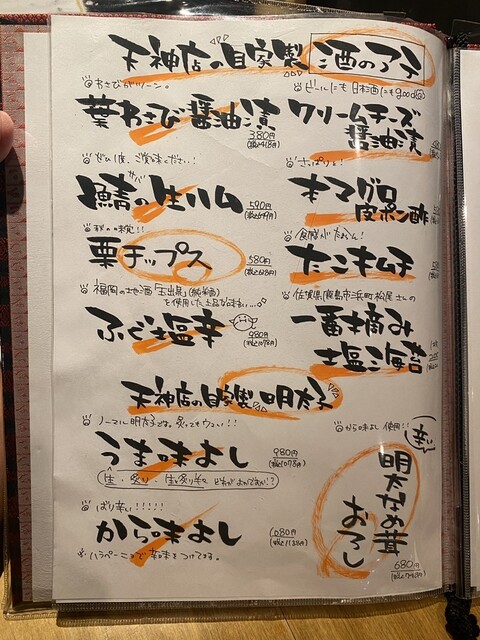 天神店の自家製 酒のアテ
わさびがツーン。
葉わさび醤油漬
380円
(税込418円)
ビールにも日本酒にもgood
クリームチーズ
醤油漬
ぜひ1度、ご賞味ください!
鯖の生ハム
サバ
590円
(税込649円)
さっぱり!
本マグロ
皮ポン酢
秋の味覚!!
栗チップス
580円
(税込638円)
食感がたまらん!
たこキムチ
福岡の地酒「玉出泉」(純米酒)
を使用した上品な味わい…
ふぐ塩辛
980円
(税込1078円)
佐賀県鹿島市浜町松尾さんの
一番摘み
塩海苔
天神店の自家製 明太子
ノーマル明太子です。炙ってもウマい!!
うま味よし
980円
(税込1078円)
生・炙り・生と炙り半々
どれがお好みですか!?
ばり辛い!!!!!
から味よし
1,080円
(税込1188円)
ハラペーニョで辛味をつけてます。
から味よし使用!!
辛いよ
明太なめ茸
おろし
680円
(税込748円)